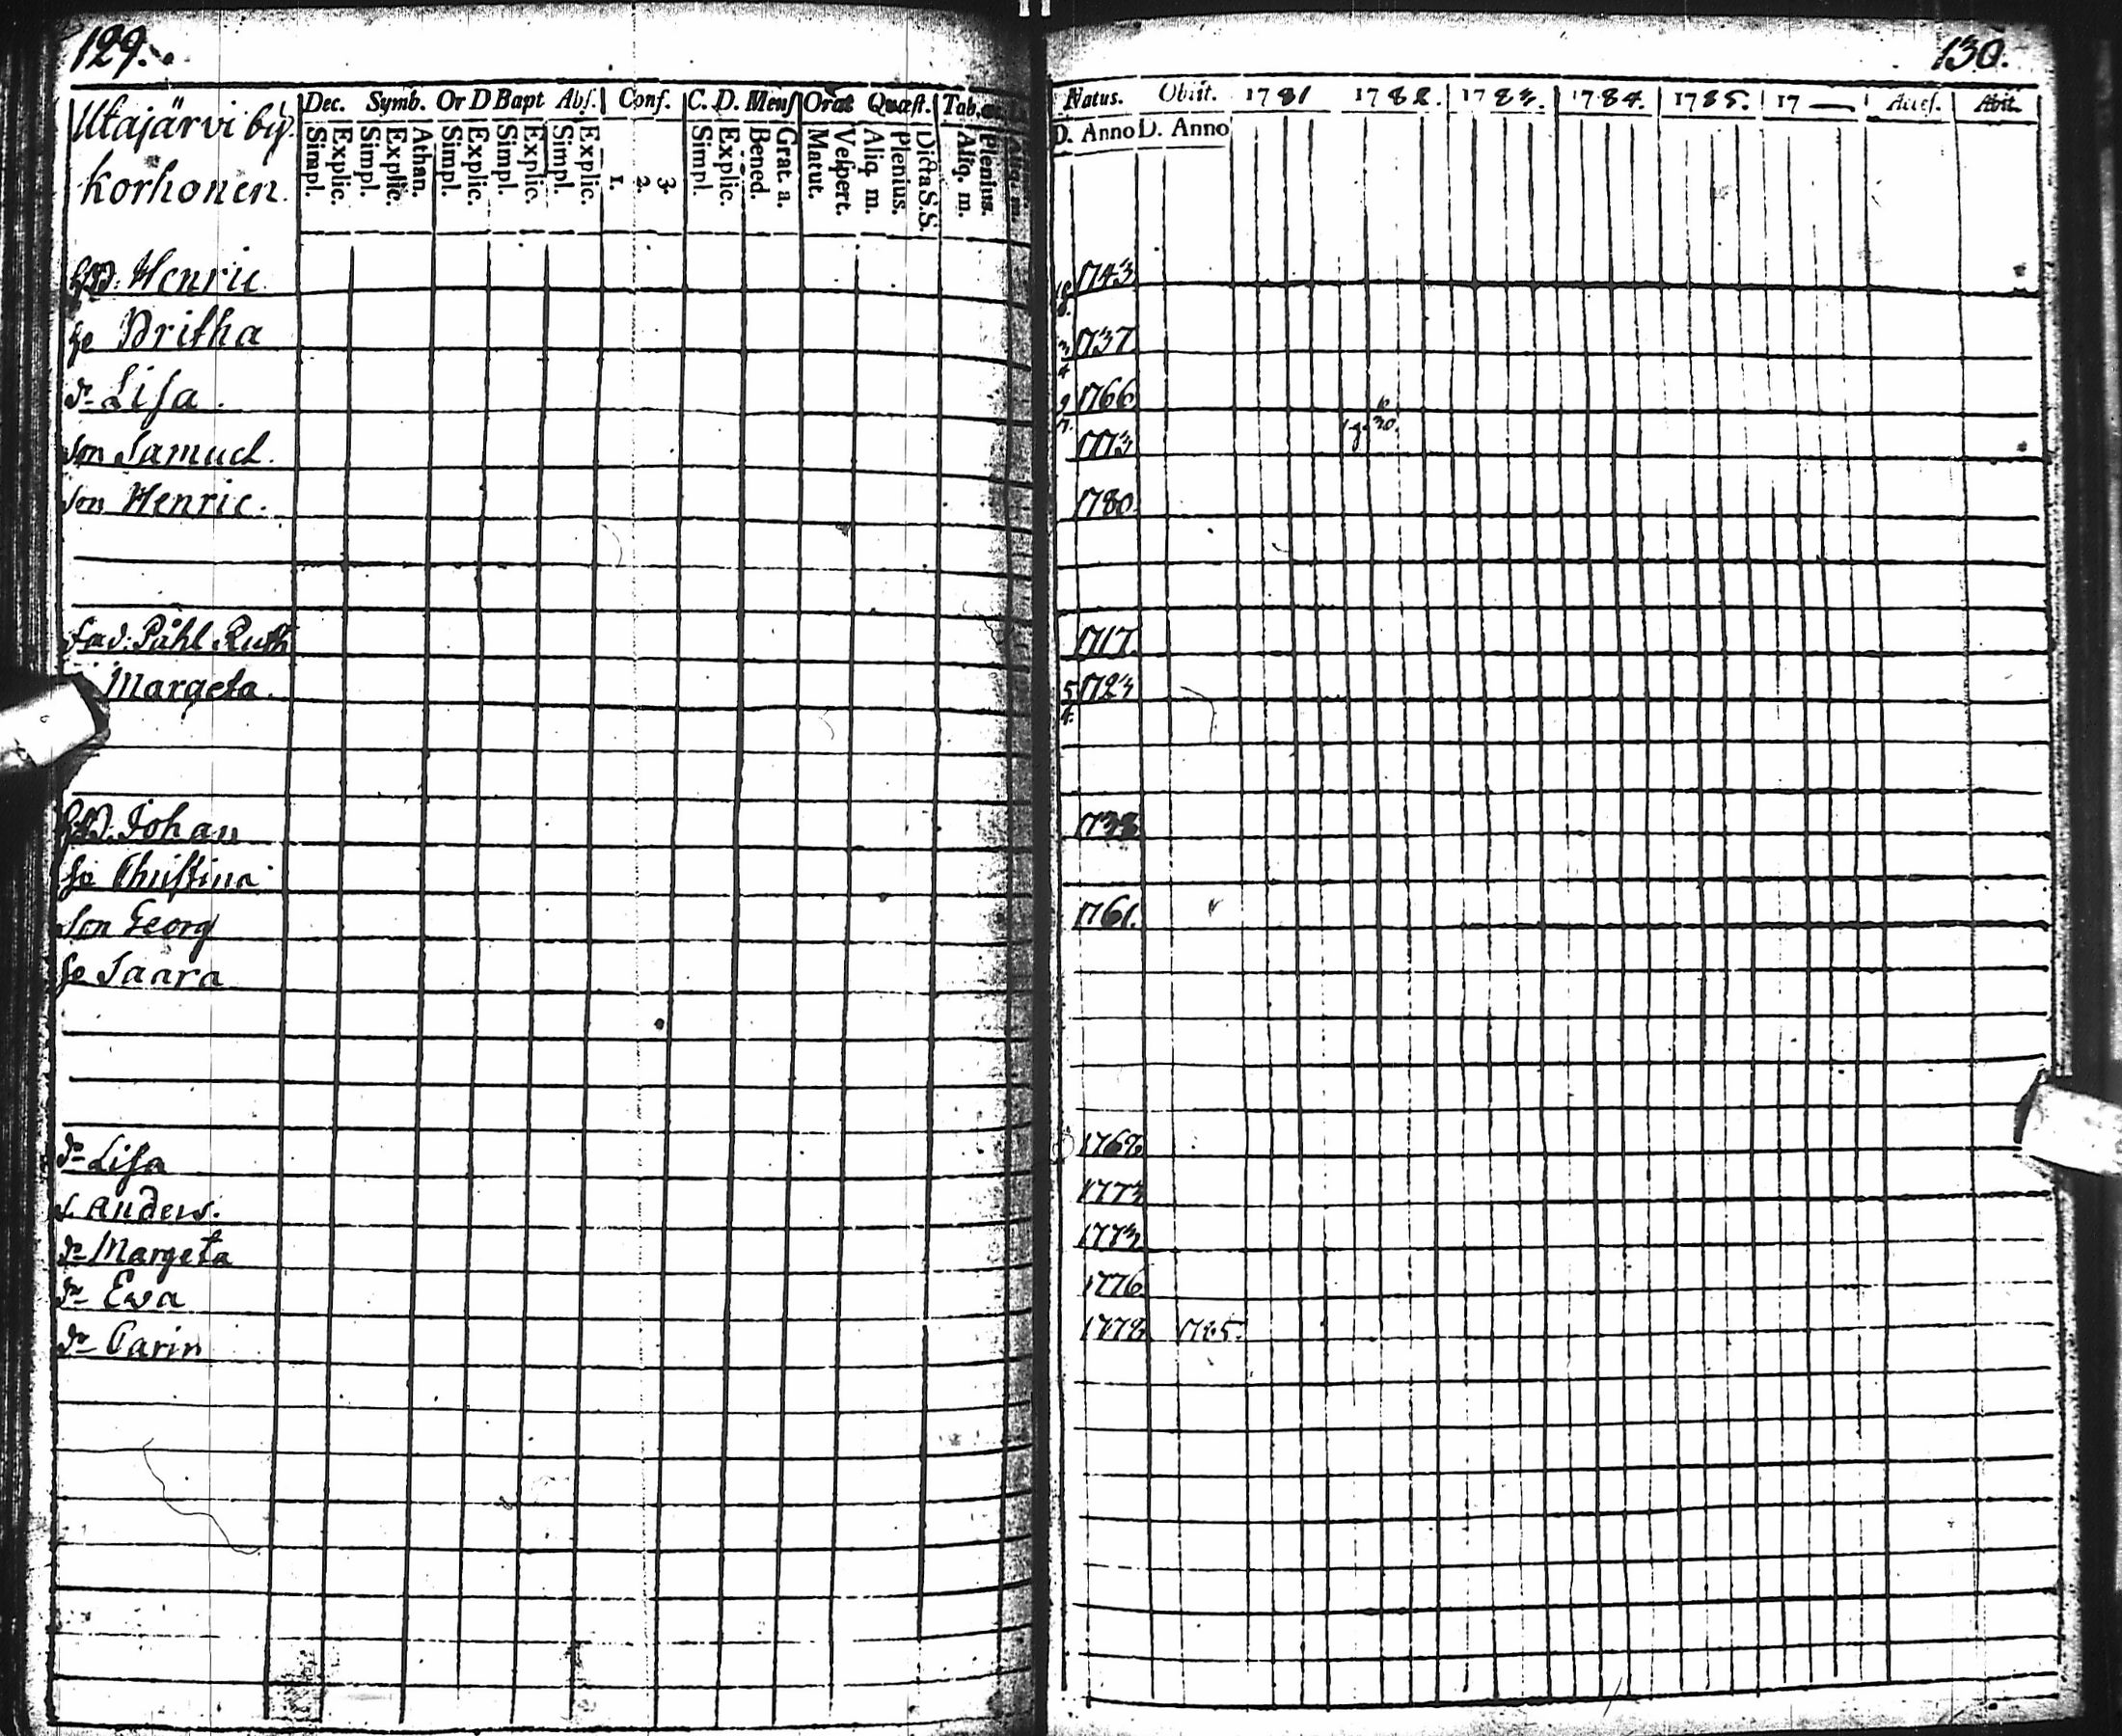 129.
Utajärvi by
Korhonen.
Dec. Symb. Or D Bapt Abs. Conf. C. D. Mens Orat Quæst. Tab.
Simpl. Explic. Simpl. Explic. Athan. Simpl. Explic. Simpl. Explic. Simpl. Explic. 1. 2. 3. Simpl. Explic. Bened. Grat. a. Matut. Vespert. Aliq. m. Plenius. Dicta S.S. Aliq. m. Plenius. Aliq. m.
Henric
Britha
dr Lisa.
Son Samuel.
Son Henric.
Påhl Ruth
Margeta.
Johan
Christina
Son Georg
Saara
dr Lisa
s. Anders.
dr Margeta
dr Eva
dr Carin
130.
Natus. Obiit. 1781 1782. 1783. 1784. 1785. 17 Acces. Abit.
D. Anno D. Anno
1743
3/4 1737
9/7. 1766
1773
1780.
1717.
5/4. 1723
1761.
1773
1773
1776
1778 1785.